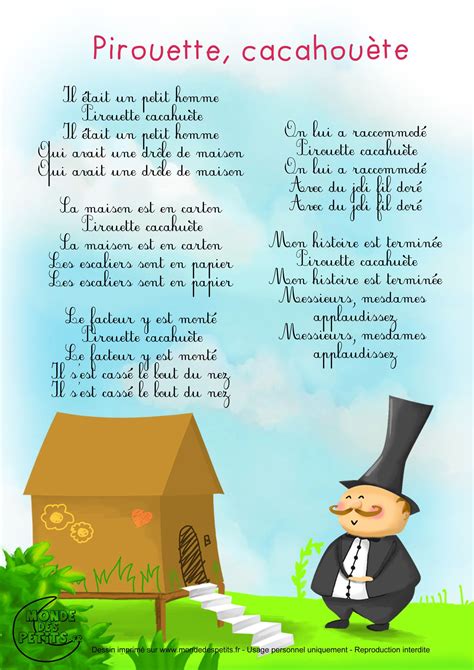 Pirouette, cacahouète
Il était un petit homme
Pirouette cacahuète
Il était un petit homme
Qui avait une drôle de maison
Qui avait une drôle de maison
La maison est en carton
Pirouette cacahuète
La maison est en carton
Les escaliers sont en papier
Les escaliers sont en papier
Le facteur y est monté
Pirouette cacahuète
Le facteur y est monté
Il s'est cassé le bout du nez
Il s'est cassé le bout du nez
On lui a raccommodé
Pirouette cacahuète
On lui a raccommodé
Avec du joli fil doré
Avec du joli fil doré
Mon histoire est terminée
Pirouette cacahuète
Mon histoire est terminée
Messieurs, mesdames
applaudissez
Messieurs, mesdames
applaudissez
MONDE
DES
PETITS.fr
Dessin imprimé sur www.mondedespetits.fr - Usage personnel uniquement - Reproduction interdite